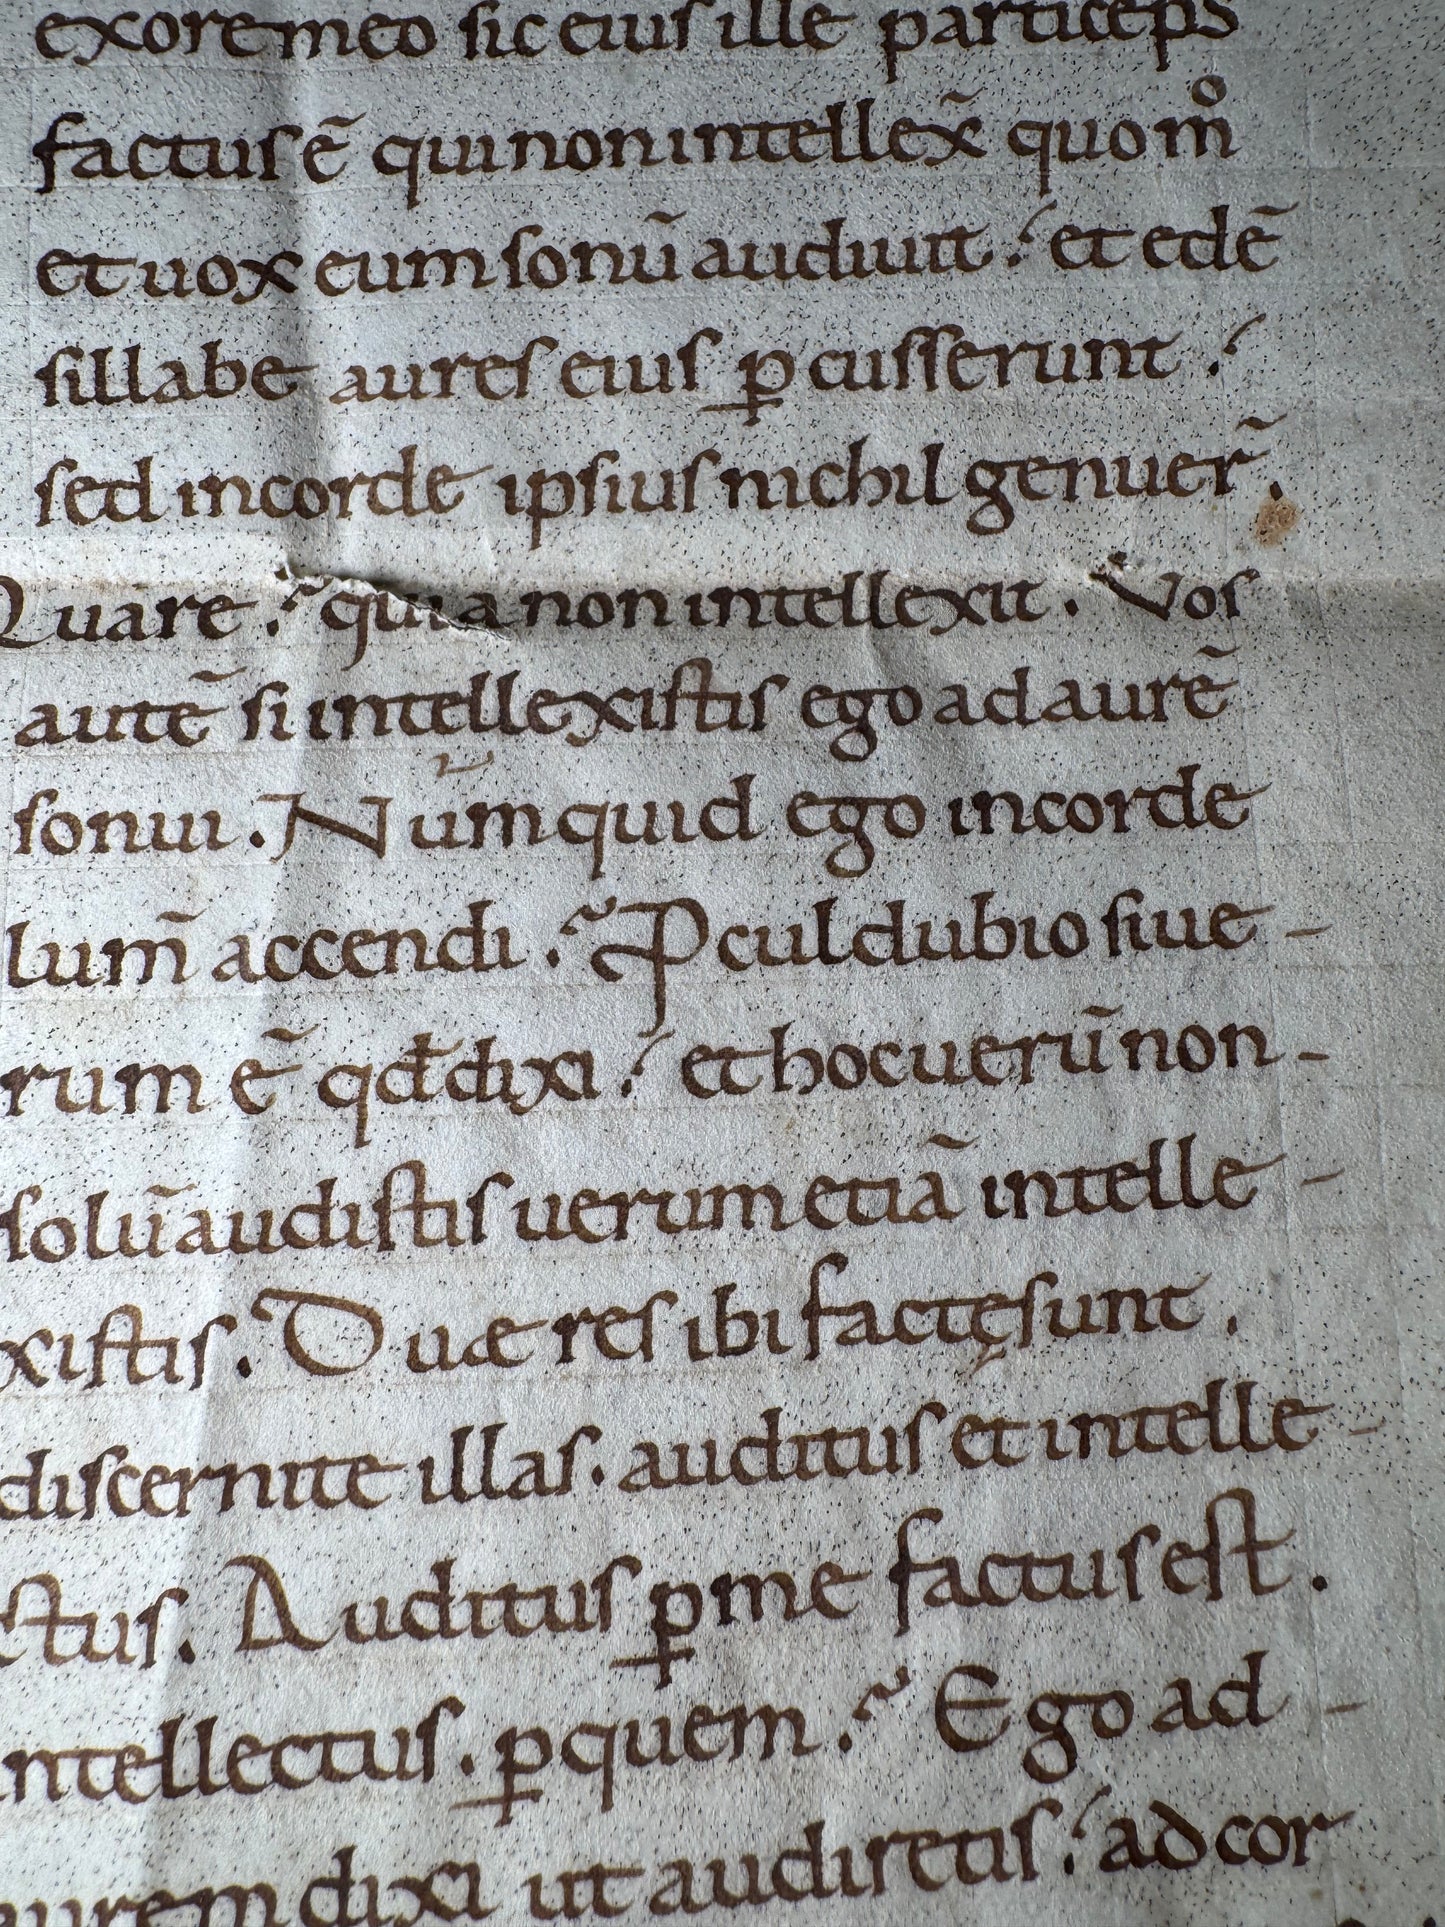 exoremeo sic eius ille particeps
factus ē qui non intellex̄ quom̊
et uox eum sonū audiuit ; et edē
sillabe aures eius ꝑcusserunt ;
sed incorde ipsius nichil genuer̄.
Quare ; quia non intellexit. Vos
autē si intellexistis ego ad aurē
sonui. Nūmquid ego incorde
lum̄ accendi. Pculdubio siue-
rum ē qđ dixi ; et hoc uerū non-
solū audistis uerum etiā intelle-
xistis. Duæ res ibi factę sunt.
discernite illas. auditus et intelle-
ctus. Auditus ꝑme factus est.
ntellectus. ꝑquem. Ego ad-
urem dixi ut audiretis ; ad cor